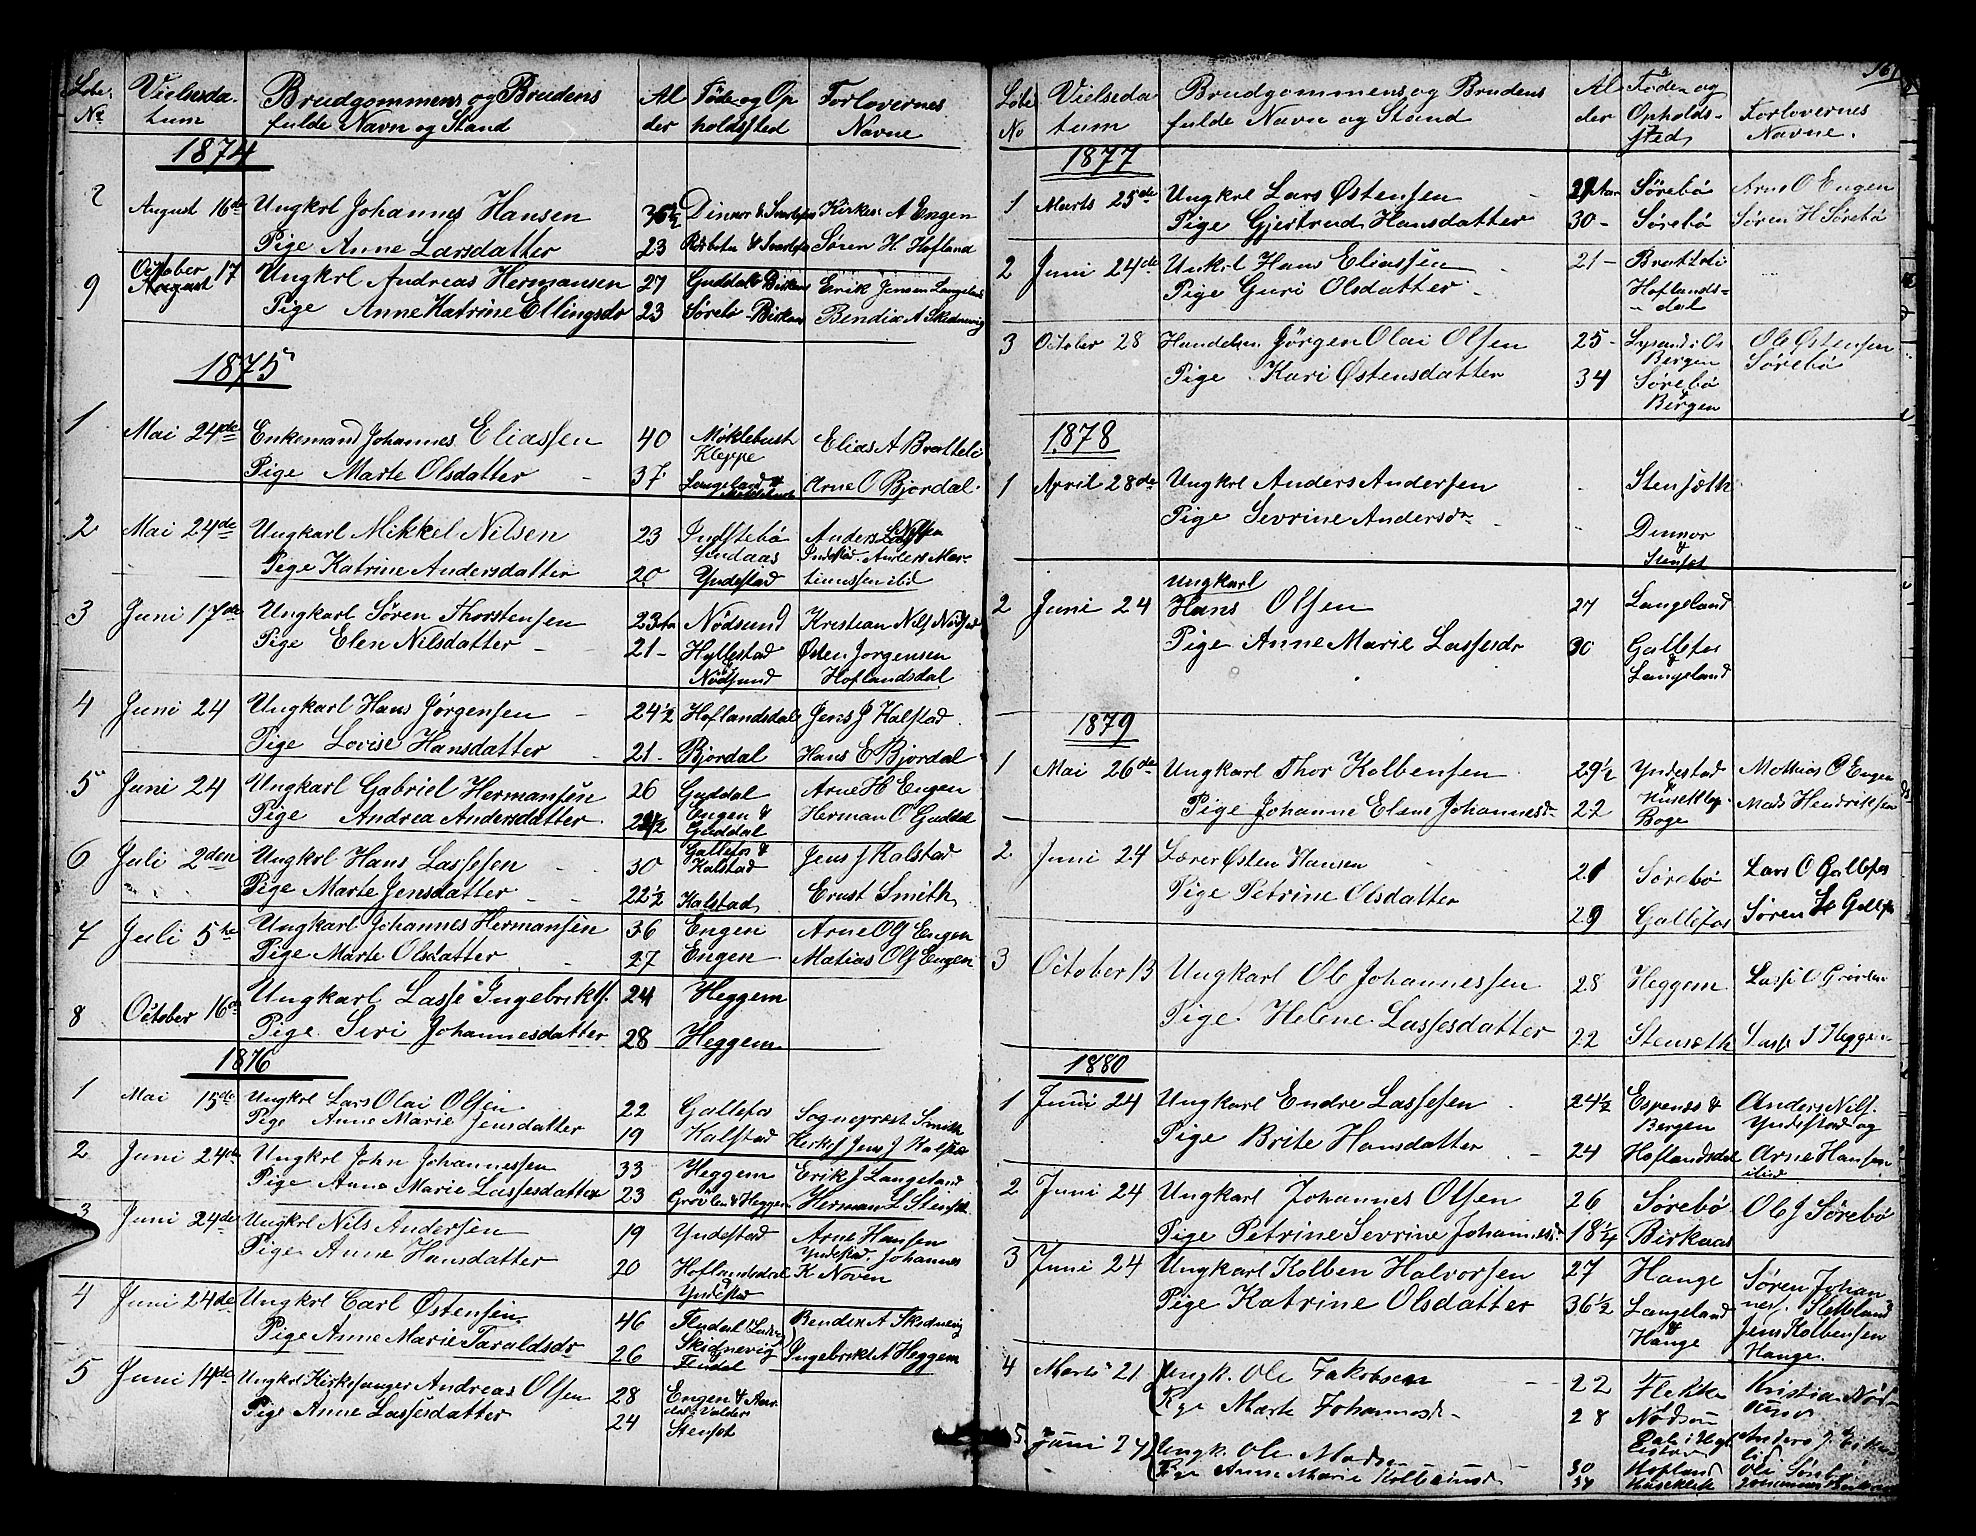 Løbe Vielsesda- Brudgommens og Brudens Al Føde og Op Forlovernes
No tum fulde Navn og Stand der holdssted Navne
1874
August 16de Ungkrl Johannes Hansen Dinnor & Kirkes. A Engen
Pige Anne Larsdatter 23 Søren H. Hofland
9 October 17 Ungkrl Andreas Hermansen 27 Guddal Birknes Erik Jensen Langeland
August
Pige Anne Katrine Ellingsdr 23 Sørebø Birknes Bendix A Skidnevig
1875
1 Mai 24de Enkemand Johannes Eliassen 40 Møklebust Elias A Bratteli
Kleppe
Pige Marte Olsdatter 37 Langeland & Arne O Bjordal
2 Mai 24de Ungkarl Mikkel Nilsen 23 Indstebø Anders
Pige Katrine Andersdatter 20 Yndestad
3 Juni 17de Ungkarl Søren Thorstensen 23 Nødsund Kristian Nils
Pige Elen Nilsdatter 21 Hyllestad Østen Jørgensen
Nødsund Hoflandsdal
4 Juni 24 Ungkarl Hans Jørgensen 24½ Hoflandsdal Jens J Kalstad
Pige Lovise Hansdatter 21 Bjordal Hans E Bjordal
5 Juni 24 Ungkarl Gabriel Hermansen 26 Guddal Arne H Engen
Pige Andrea Andersdatter Engen & Herman O Guddal
Guddal
6 Juli 2den Ungkrl Hans Lassesen 30 Gallefos & Jens J Kalstad
Kalstad
Pige Marte Jensdatter 22½ Kalstad Ernst Smith
7 Juli 5te Ungkarl Johannes Hermansen 36 Engen Arne OJ Engen
Pige Marte Olsdatter 27 Engen Matias OJ Engen
8 October 16de Ungkarl Lasse Ingebrikts. 24 Heggem
Pige Siri Johannesdatter 28 Heggem
1876
1 Mai 15de Ungkrl Lars Olai Olsen 22 Gallefos Sogneprest Smith
Pige Anne Marie Jensdatter 19 Kalstad Kirkes Jens J Kalstad
2 Juni 24de Ungkrl John Johannessen 33 Heggem Erik J Langeland
Pige Anne Marie Lassesdatter 23 Grøvlen & Heggem Herman L Stensæt
3 Juni 24de Ungkrl Nils Andersen 19 Yndestad Arne Hansen
Yndestad. Johannes
Pige Anne Hansdatter 20 Hoflandsdal K Noven
Yndestad
4 Juni 24de Ungkrl Carl Østensen 46 Flendal Bendix A Skidnevig
Pige Anne Marie Taraldsdr 26 Skidnevig Ingebrikt A Heggem
Flendal
5 Juni 14de Ungkrl Kirkesanger Andreas Olsen 28 Engen &
Pige Anne Lassesdatter 24 Stensæt
161
Løbe Vielseda Brudgommens og Brudens Al Føden og Forlovernes
No tum fulde Navn og Stand der Opholds- Navne.
sted
1877
1 Marts 25de Ungkrl Lars Østensen Sørebø Arne O Engen
Pige Gjertrud Hansdatter 30 - Sørebø Søren H Sørebø
2 Juni 24de Unkrl Hans Eliassen 21 - Bratteli
Pige Guri Olsdatter Hoflands-
dal
3 October 28 Handelsm. Jørgen Olai Olsen 25 - Ole Østensen
Bergen Sørebø
Pige Kari Østensdatter 34 Sørebø
Bergen
1878
1 April 28de Ungkrl Anders Andersen Stensæth
Pige Sevrine Andersdr Dinnor
&
Stensæt
Ungkarl
2 Juni 24 Hans Olsen 27 Langeland
Pige Anne Marie Lassesdr 30 Gallefos
&
Langeland
1879
1 Mai 26de Ungkarl Thor Kolbensen 29½ Yndestad Mathias O Engen
Pige Johanne Elene Johannesdr 22 Huseklep Mads Hendriksen
Boge
2 Juni 24 Lærer Østen Hansen 21 Sørebø Lars O Gallefos
Pige Petrine Olsdatter 29 Gallefos Søren L Gallefos
3 October 13 Ungkarl Ole Johannessen 28 Heggem Lasse O
Pige Helene Lassesdatter 22 Stensæth Lasse J Heggem
1880
1 Juni 24 Ungkarl Endre Lassesen 24½ Espenes & Anders Nils.
Bergen Yndestad og
Pige Brite Hansdatter 24 Hoflandsdal Arne Hansen
ibid
2 Juni 24 Ungkarl Johannes Olsen 26 Sørebø Ole J Sørebø
Pige Petrine Sevrine Johannesdr 18¼ Birknæs
3 Juni 24 Ungkarl Kolben Halvorsen 27 Hange Søren Johan
Pige Katrine Olsdatter 36½ Langeland nes. Sletteland
& Jens Kolbensen
Hange Hange.
4 Marts 21 Ungk. Ole Jakobsen 22 Flekke Kristian Nød-
Pige Marte Johannesd 28 Nødsun sund
5 Juni 24 Ungk. Ole Madsen Anders J.
Pige Anne Marie 30 Hofland Ole Sørebø
37 Huseklep